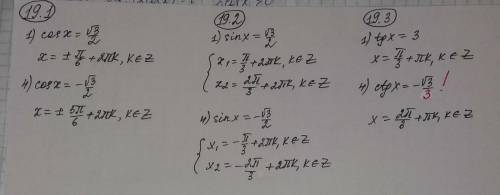 19.1
1) cosx = √3/2
x = ± π/6 + 2πk, k∈Z
4) cosx = -√3/2
x = ± 5π/6 + 2πk, k∈Z
19.2
1) sinx = √3/2
x₁ = π/3 + 2πk, k∈Z
x₂ = 2π/3 + 2πk, k∈Z
4) sinx = -√3/2
x₁ = -π/3 + 2πk, k∈Z
x₂ = -2π/3 + 2πk, k∈Z
19.3
1) tgx = 3
x = π/3 + πk, k∈Z
4) ctgx = -√3/3 !
x = 2π/3 + πk, k∈Z